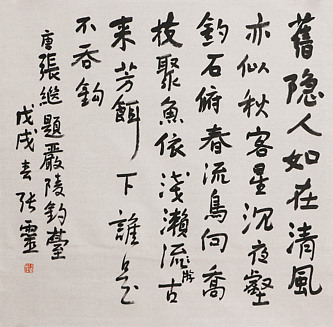 舊隐人如在清風
亦似秋客星沉夜壑
釣石俯春流鳥向喬
枝聚魚依淺瀨流游古
来芳餌下誰是
不吞鈎
唐張继題嚴陵釣臺
戊戌春张霊